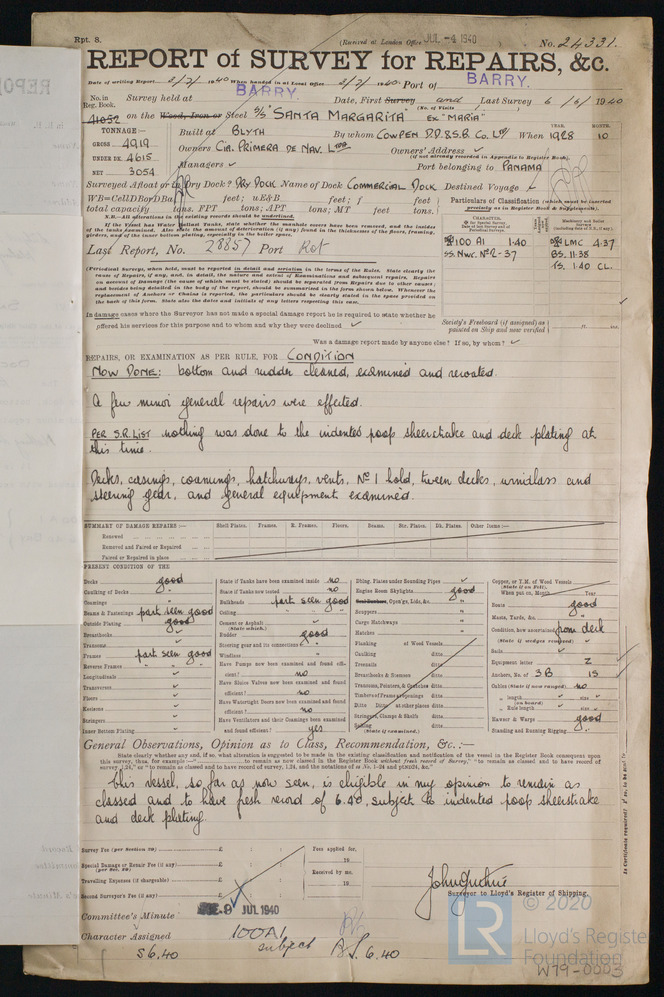 Rpt. 8.
(Received at London Office JUL -4 1940
No. 24331.
REPORT of SURVEY for REPAIRS, &c.
Date of writing Report 3/7/ 1940 When handed in at Local Office 3/7/ 1940. Port of BARRY.
BARRY
No. in Reg. Book. Survey held at Date, First Survey and Last Survey 6 /6/ 1940
(No. of Visits
41052 on the Wood, Iron or Steel S/S "SANTA MARGARITA" EX "MARIA"
TONNAGE:—
GROSS 4919
UNDER DK. 4615
NET 3054
Built at BLYTH By whom COWPEN D.D. & S.B. Co. Ltd When YEAR. 1928 MONTH. 10
Owners CIA. PRIMERA DE NAV. LTDA Owners' Address ✓
(if not already recorded in Appendix to Register Book).
Managers ✓ Port belonging to PANAMA
Surveyed Afloat or in Dry Dock? DRY DOCK Name of Dock COMMERCIAL DOCK Destined Voyage ✓
WB=CellDBorDBa feet; uE&B feet; f feet
total capacity tons. FPT tons; APT tons; MT feet tons.
N.B.—All alterations in the existing records should be underlined.
If the Vessel has Water Ballast Tanks, state whether the manhole covers have been removed, and the insides of the tanks examined. Also state the amount of deterioration (if any) found in the thicknesses of the floors, framing, girders, and of the inner bottom plating, especially in the boiler space.
Last Report, No. 28857 Port Rot
Particulars of Classification (which must be inserted precisely as in Register Book & Supplements).
100 A1 1.40
SS. Nwc. No 2-37
LMC 4.37
BS. 11.38
TS. 1.40 CL.
(Periodical Surveys, when held, must be reported in detail and seriatim in the terms of the Rules. State clearly the cause of Repairs, if any, and, in detail, the nature and extent of Examinations and subsequent repairs. Repairs on account of Damage (the cause of which must be stated) should be separated from Repairs due to other causes; and besides being detailed in the body of the report, should be summarised in the form shown below. Whenever the replacement of Anchors or Chains is reported, the particulars should be clearly stated in the space provided on the back of this form. State also the dates and initials of any letters respecting this case.
In damage cases where the Surveyor has not made a special damage report he is required to state whether he
offered his services for this purpose and to whom and why they were declined ✓
Society's Freeboard (if assigned) as painted on Ship and now verified ft. ins.
Was a damage report made by anyone else? If so, by whom? ✓
REPAIRS, OR EXAMINATION AS PER RULE, FOR CONDITION
NOW DONE: bottom and rudder cleaned, examined and recoated.
A few minor general repairs were effected.
PER S.R. LIST nothing was done to the indented poop sheerstrake and deck plating at
this time.
Decks, casings, coamings, hatchways, vents, No 1 hold, tween decks, windlass and
steering gear, and general equipment examined.
SUMMARY OF DAMAGE REPAIRS:— Shell Plates. Frames. R. Frames. Floors. Beams. Str. Plates. Dk. Plates. Other Items:—
Renewed
Removed and Faired or Repaired
Faired or Repaired in place
PRESENT CONDITION OF THE
Decks good
Caulking of Decks ✓
Coamings ✓
Beams & Fastenings part seen good
Outside Plating good
Breasthooks ✓
Transoms ✓
Frames part seen good
Reverse Frames " " "
Longitudinals ✓
Transverses ✓
Floors ✓
Keelsons ✓
Stringers ✓
Inner Bottom Plating ✓
State if Tanks have been examined inside no
State if Tanks now tested no
Bulkheads part seen good
Ceiling ✓
Cement or Asphalt ✓
(State which.)
Rudder good
Steering gear and its connections ✓
Windlass ✓
Have Pumps now been examined and found efficient? no
Have Sluice Valves now been examined and found efficient? no
Have Watertight Doors now been examined and found efficient? no
Have Ventilators and their Coamings been examined and found efficient? yes
Dblng. Plates under Sounding Pipes ✓
Engine Room Skylights good
Open'gs, Lids, &c. ✓
Scuppers ✓
Cargo Hatchways ✓
Hatches ✓
Planking of Wood Vessels
Caulking ditto
Treenails ditto
Breasthooks & Stemson ditto
Transoms, Pointers, & Crutches ditto
Timbers of Frame at openings ditto
Ditto Ditto at other places ditto
Stringers, Clamps & Shelfs ditto
Salting ditto
(State if examined.)
Copper, or Y.M. of Wood Vessels
(State if on Felt).
When put on, Month Year
Boats good
Masts, Yards, &c. "
Condition, how ascertained from deck
(State if wedges removed.)
Sails ✓
Equipment letter Z
Anchors, No. of 3B 1S
Cables (State if now ranged) no
" length size
(on board)
" Rule length size
Hawser & Warps good
Standing and Running Rigging
General Observations, Opinion as to Class, Recommendation, &c.:—
State clearly whether any, and, if so, what alteration is suggested to be made in the existing classification and notification of the vessel in the Register Book consequent upon
This vessel, so far as now seen, is eligible in my opinion to remain as
classed and to have fresh record of 6.40, subject to indented poop sheerstrake
and deck plating.
Survey Fee (per Section 29) £
Special Damage or Repair Fee (if any) £
(per Sec. 29)
Travelling Expenses (if chargeable) £
Second Surveyor's Fee (if any) £
Fees applied for,
19
Received by me,
19
Surveyor to Lloyd's Register of Shipping.
Committee's Minute 9 JUL 1940
Character Assigned 100A1
subject
S 6.40
B.S. 6.40
© 2020
LR
Lloyd's Register
Foundation
W79-0003